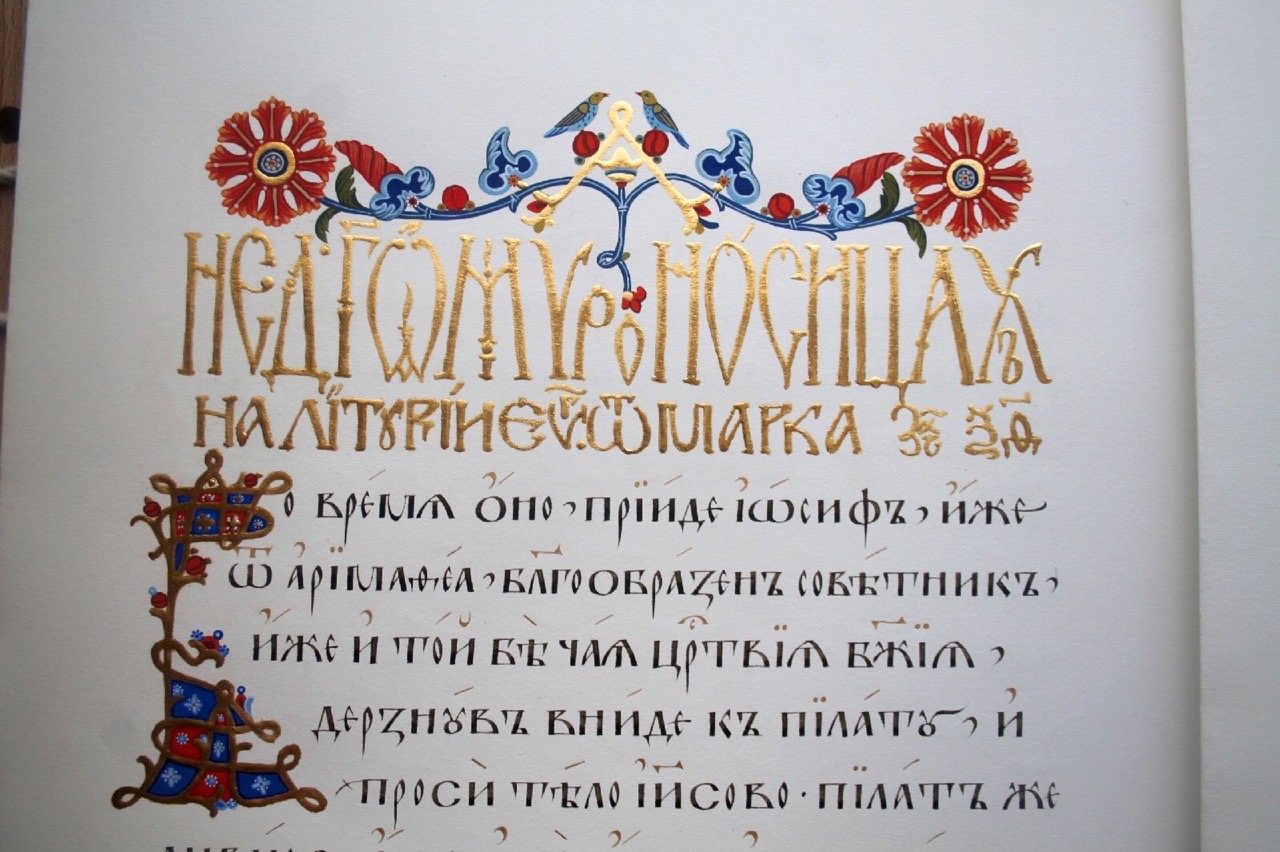 Нед г҃ ѡ мѵроно́сицахъ
на літꙋргі́и є҆ѵⷢ҇ ѿ марка заⷱ҇ ѯ҃ѳ
Во вре́мѧ ѻ҆́но, прїи́де і҆ѡ́сифъ, и҆́же
ѿ а҆рїмаѳе́а, бл҃гоѡбра́зенъ совѣ́тникъ,
и҆́же и҆ то́й бѣ̀ ча́ѧ црⷭ҇твїѧ бж҃їѧ,
дерзнꙋ́въ вни́де къ пїла́тꙋ, и҆
просѝ тѣ́ло і҆и҃сово. пїла́тъ же